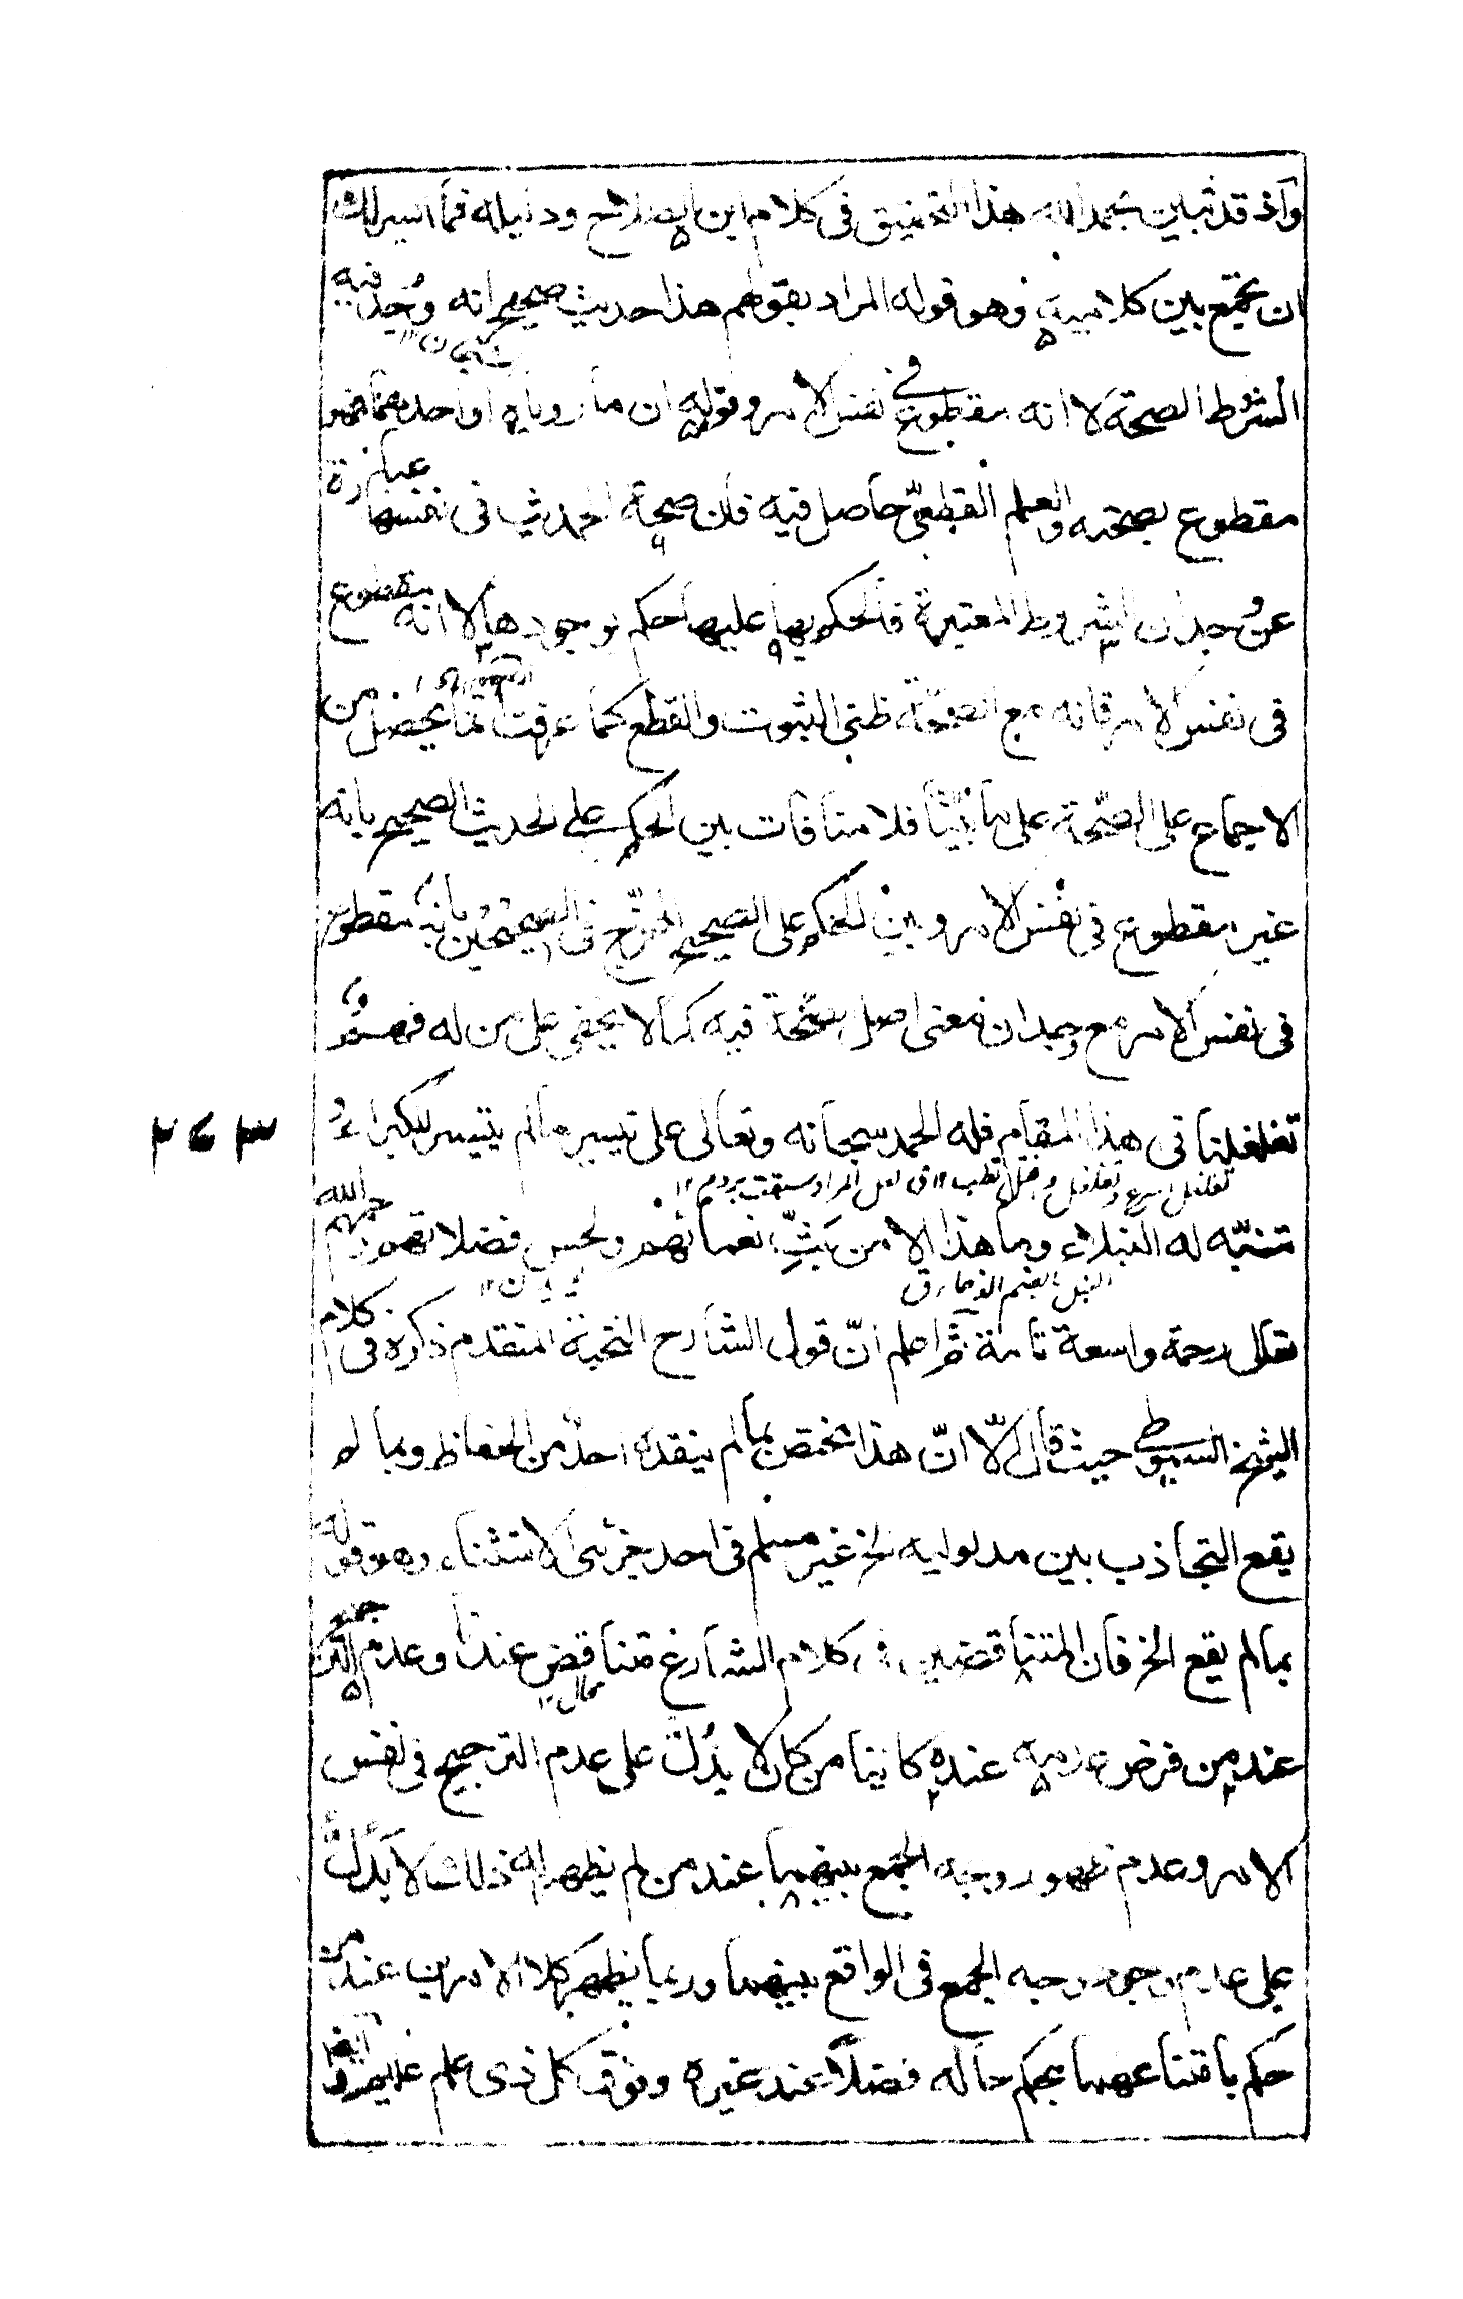 وإذ قد تبين بحمد الله هذا التحقيق في كلام ابن الصلاح ودليله فما أيسر لك
ان تجمع بين كلاميه وهو قوله المراد بقولهم هذا حديث صحيح انه وجد فيه
الشروط الصحة لا انه مقطوع في نفس الامر وقوله ان ما روياه او احدهما فهو
مقطوع بصحته والعلم القطعي حاصل فيه فان صحة الحديث في نفسها عبارة
عن وجدان الشروط المعتبرة فالحكم بها عليها حكم بوجودها لا انه مقطوع
في نفس الامر فانه مع الصحة ظني الثبوت والقطع كما عرفت انما يحصل من
الاجماع على الصحة على ما بيّنّا فلا منافات بين الحكم على الحديث الصحيح بانه
غير مقطوع في نفس الامر وبين الحكم على الصحيح المخرّج في الصحيحين بانه مقطوع
في نفس الامر مع وجدان معنى اصل الصحة فيه كما لا يخفى على من له فهم
تغلغلنا في هذا المقام فله الحمد سبحانه وتعالى على تيسير ما لم يتيسر للكبراء
٢٦٣
تنبّه له النبلاء وما هذا الا من بثّ نعمائهم ولحس فضلاتهم رحمهم الله
تعالى رحمة واسعة تامة ثم اعلم انّ قول الشارح النخبة المتقدم ذكره في كلام
الشيخ السيوطي حيث قال الّا انّ هذا يختص بما لم ينقده احد من الحفاظ وبما لم
يقع التجاذب بين مدلوليه الخ غير مسلم في احد جزئى الاستثناء وهو قوله
بما لم يقع الخ فان المتناقضين في كلام الشارع متناقض عندنا وعدم الترجيح
عند من فرض عدمه عنده كائنا من كان لا يدلّ على عدم الترجيح في نفس
الامر وعدم ظهور وجه الجمع بينهما عند من لم يظهر له ذلك لا يدلّ
على عدم وجود وجه الجمع في الواقع بينهما وربما يظهر كلا الامرين عند من
حكم بامتناعهما بحكم حاله فضلا عند غيره وفوق كل ذى علم عليم